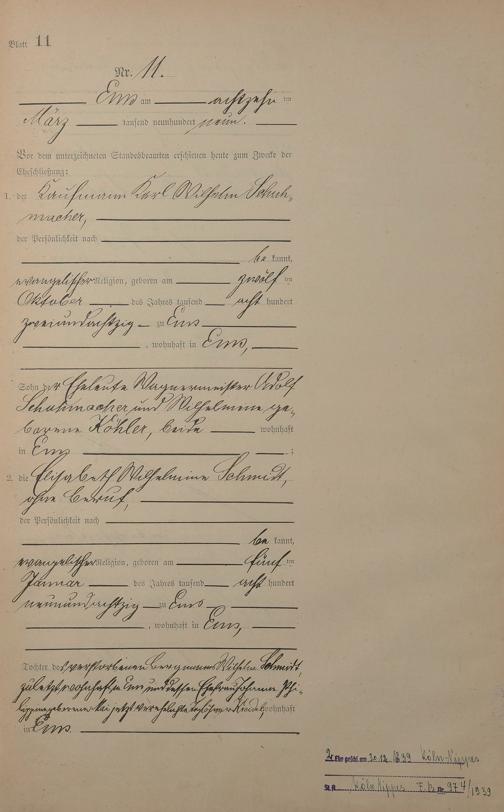 Blatt 11
Nr. 11.
Ems am achtzehn ten
März tausend neunhundert neun.
Vor dem unterzeichneten Standesbeamten erschienen heute zum Zwecke der
Eheschließung:
1. der Kaufmann Karl Wilhelm Schuh-
macher,
der Persönlichkeit nach
be kannt,
evangelischer Religion, geboren am zwölf ten
Oktober des Jahres tausend acht hundert
zweiundachtzig zu Ems
, wohnhaft in Ems,
Sohn der Eheleute Wagnermeister Adolf
Schuhmacher und Wilhelmine ge-
borene Köhler, beide wohnhaft
in Ems ;
2. die Elisabeth Wilhelmine Schmidt,
ohne Beruf,
der Persönlichkeit nach
be kannt,
evangelischer Religion, geboren am fünf ten
Januar des Jahres tausend acht hundert
neunundachtzig zu Ems
, wohnhaft in Ems,
Tochter des verstorbenen Bergmanns Wilhelm Schmidt,
zuletzt wohnhaft in Ems und dessen Ehefrau Johanna Phi-
jetzt verehelichte wohnhaft
in Ems.
2. Ehe geschl. am 30.12.1939 Köln-Nippes
St.A. Köln Nippes F.B. 974/1939